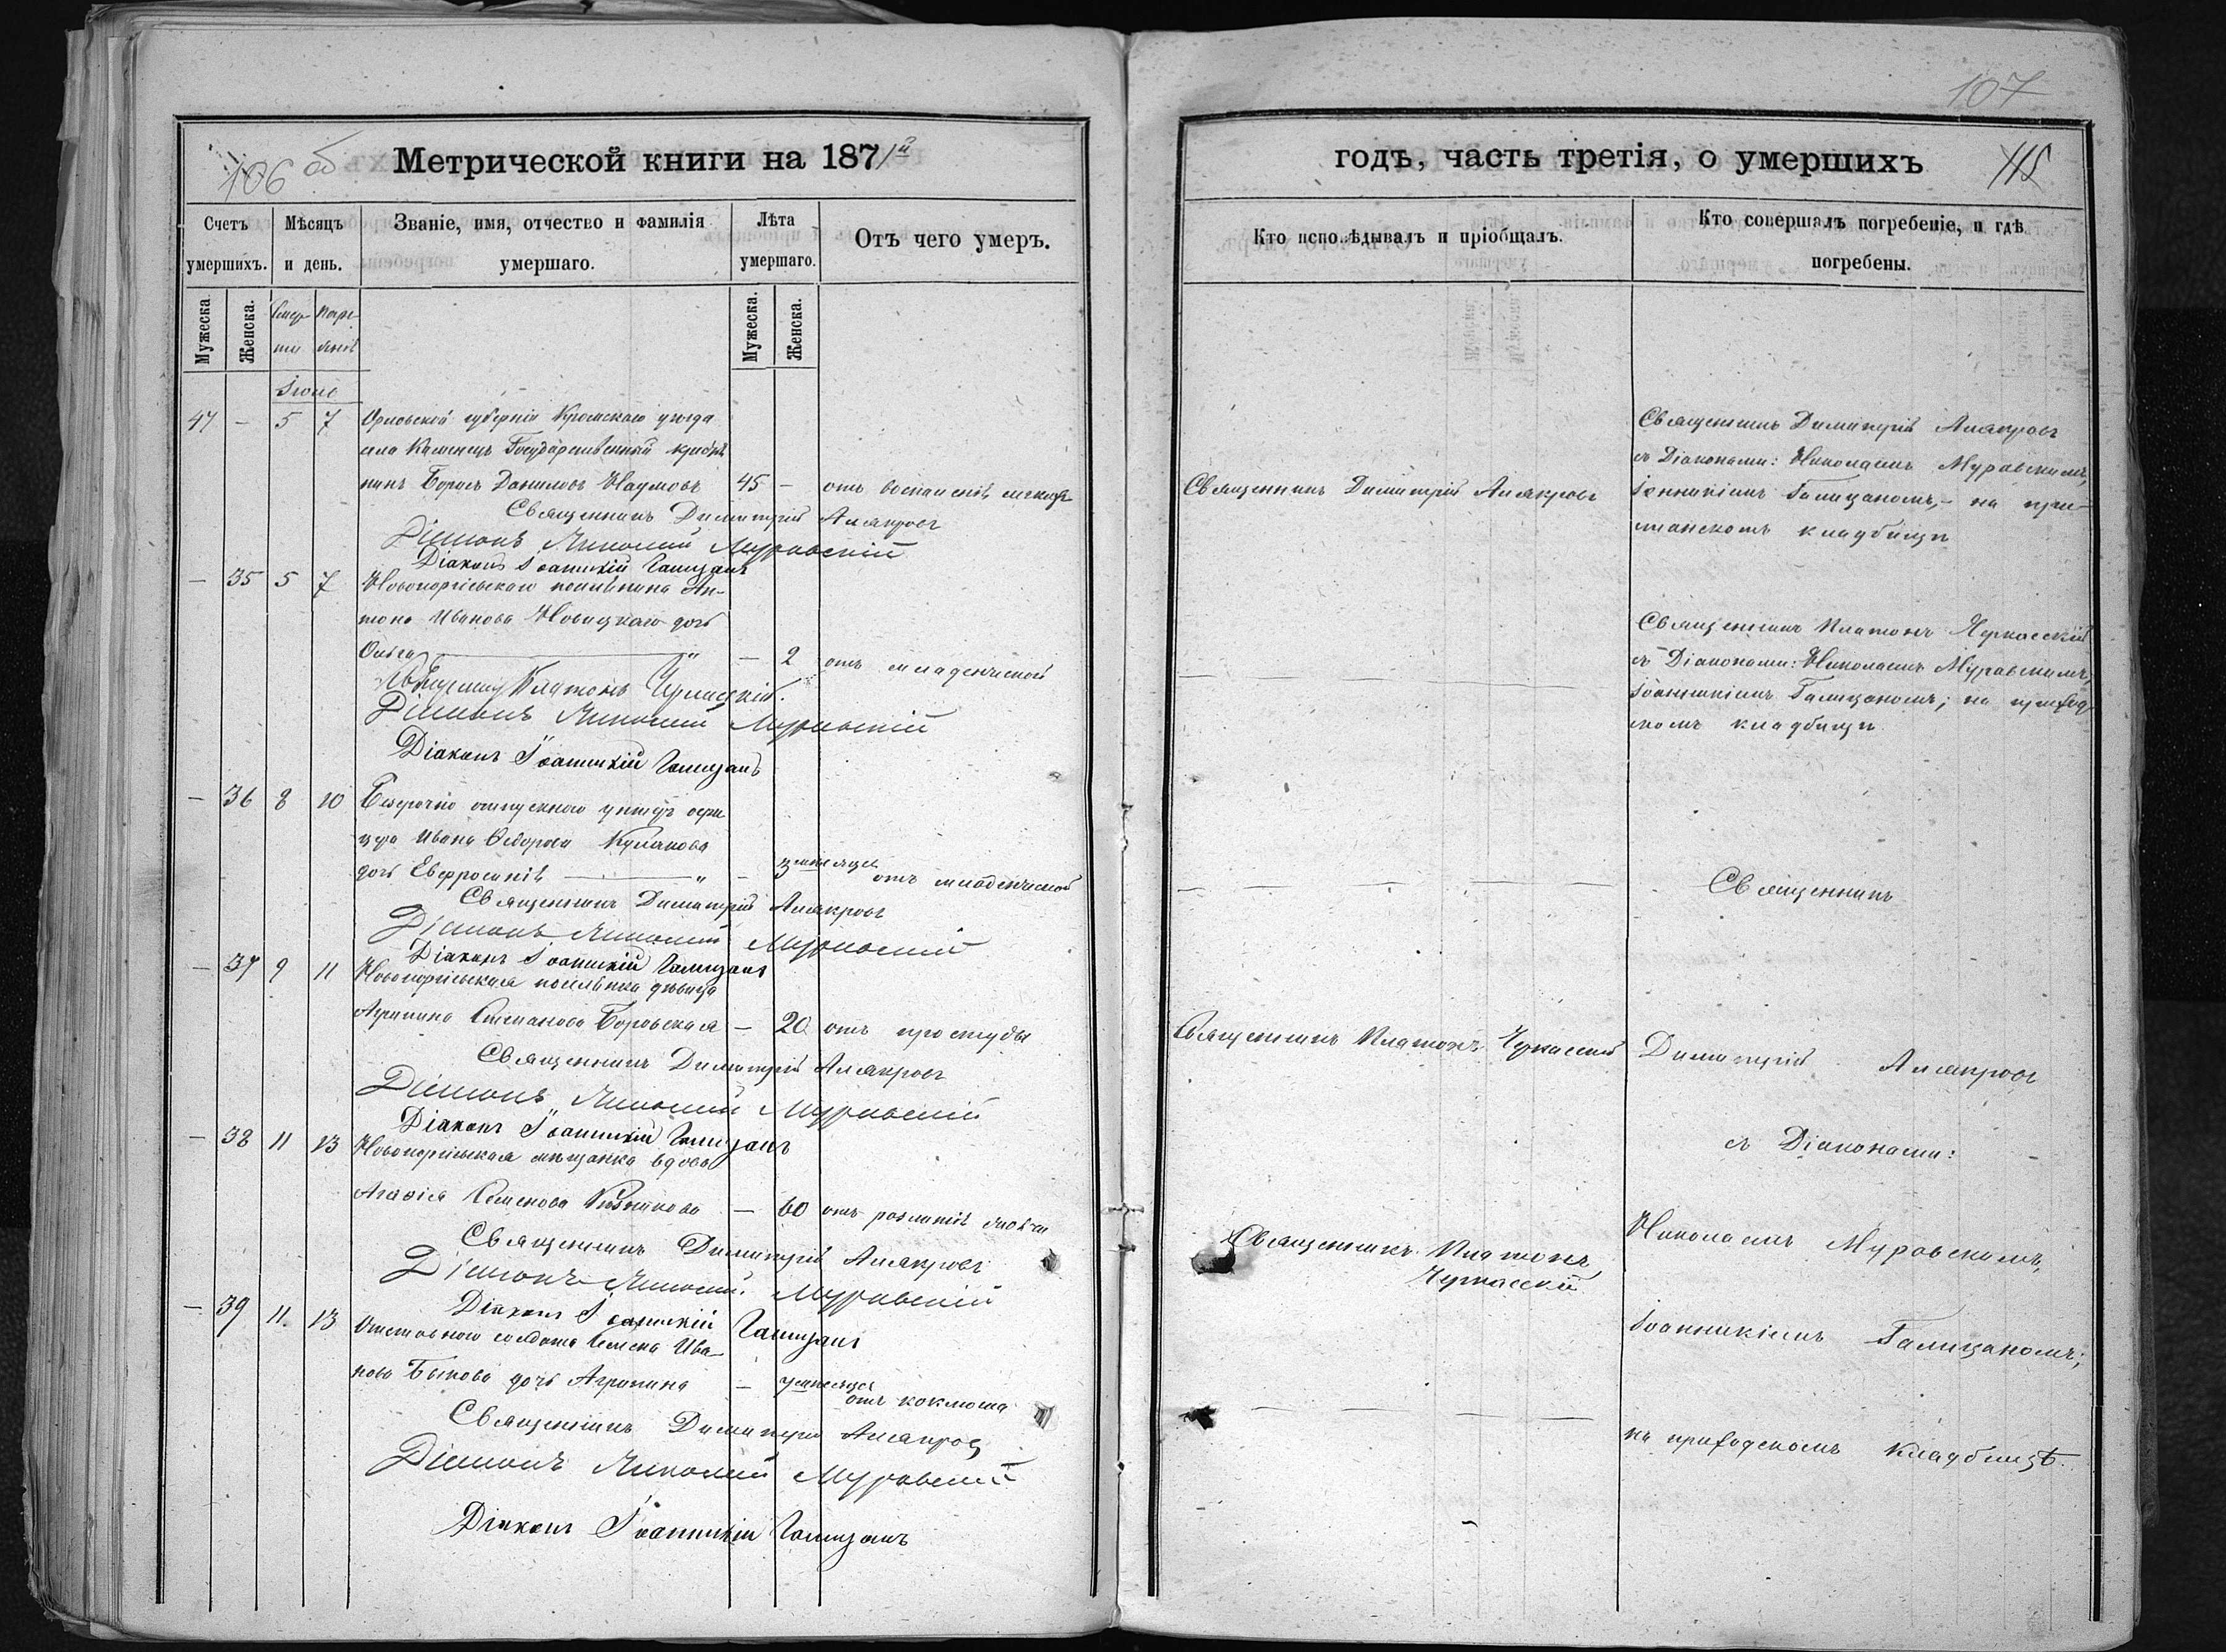 106 об
Метрической книги на 1871й
Счетъ умершихъ.
Мѣсяцъ и день.
Званіе, имя, отчество и фамилія умершаго.
Лѣта умершаго.
Отъ чего умеръ.
Мужеска.
Женска.
Смер-
ти
Погре-
бенія
Мужеска.
Женска.
Іюнь
47 - 5 7 Орловской губерніи Кромскаго уѣзда
села Каменецъ Государственный крестья
нинъ Борисъ Даниловъ Наумовъ 45 - отъ воспаленія легкихъ
Священникъ Димитрій Аляк­ровъ
Діаконъ Николай Муравскій
Діаконъ Іоанникій Галицанъ
- 35 5 7 Новогеоргіевскаго поселянина Ан-
тона Иванова Новицкаго дочь
Ольга " - 2 отъ младенческой
Священникъ Платонъ Черкасскій.
Діаконъ Николай Муравскій
Діаконъ Іоанникій Галицанъ
- 36 8 10 Безсрочно отпускного унтеръ офи
цера Ивана Ѳедорова Кулакова
дочь Евфросинія " - 3 мѣсяца отъ младенческой
Священникъ Димитрій Алякровъ
Діаконъ Николай Муравскій
Діаконъ Іоанникій Галицанъ
- 37 9 11 Новогеоргіевская поселянка дѣвица
Агрипина Степанова Боровская - 20 отъ простуды
Священникъ Димитрій Алякровъ
Діаконъ Николай Муравскій
Діаконъ Іоанникій Галицанъ
- 38 11 13 Новогеоргіевская мѣщанка вдова
Агафія Семенова - 60 отъ разлитія
Священникъ Димитрій Алякровъ
Діаконъ Николай Муравскій
Діаконъ Іоанникій Галицанъ
- 39 11. 13 Отставного солдата Семена Ива-
нова Быкова дочь Агрипина - 7 мѣсяца отъ коклюша
Священникъ Димитрій Алякровъ
Діаконъ Николай Муравскій
Діаконъ Іоанникій Галицанъ
107
годѣ, часть третія, о умершихъ
115
Кто исповѣдывалъ и пріобщалъ.
Кто совершалъ погребеніе, и гдѣ
погребены.
Священникъ Димитрій Алякровъ
Священникъ Димитрій Алякровъ
съ Діаконами: Николаемъ Муравскимъ,
Іоанникіемъ Галицаномъ, - на
кладбищѣ
Священникъ Платонъ Черкасскій
съ Діаконами: Николаемъ Муравскимъ,
Іоанникіемъ Галицаномъ; на приход
скомъ кладбищѣ
Священникъ
Священникъ Платонъ Черкасскій
Димитрій Алякровъ
съ Діаконами:
Священникъ Платонъ
Черкасскій
Николаемъ Муравскимъ,
Іоанникіемъ Галицаномъ;
на приходскомъ кладбищѣ.